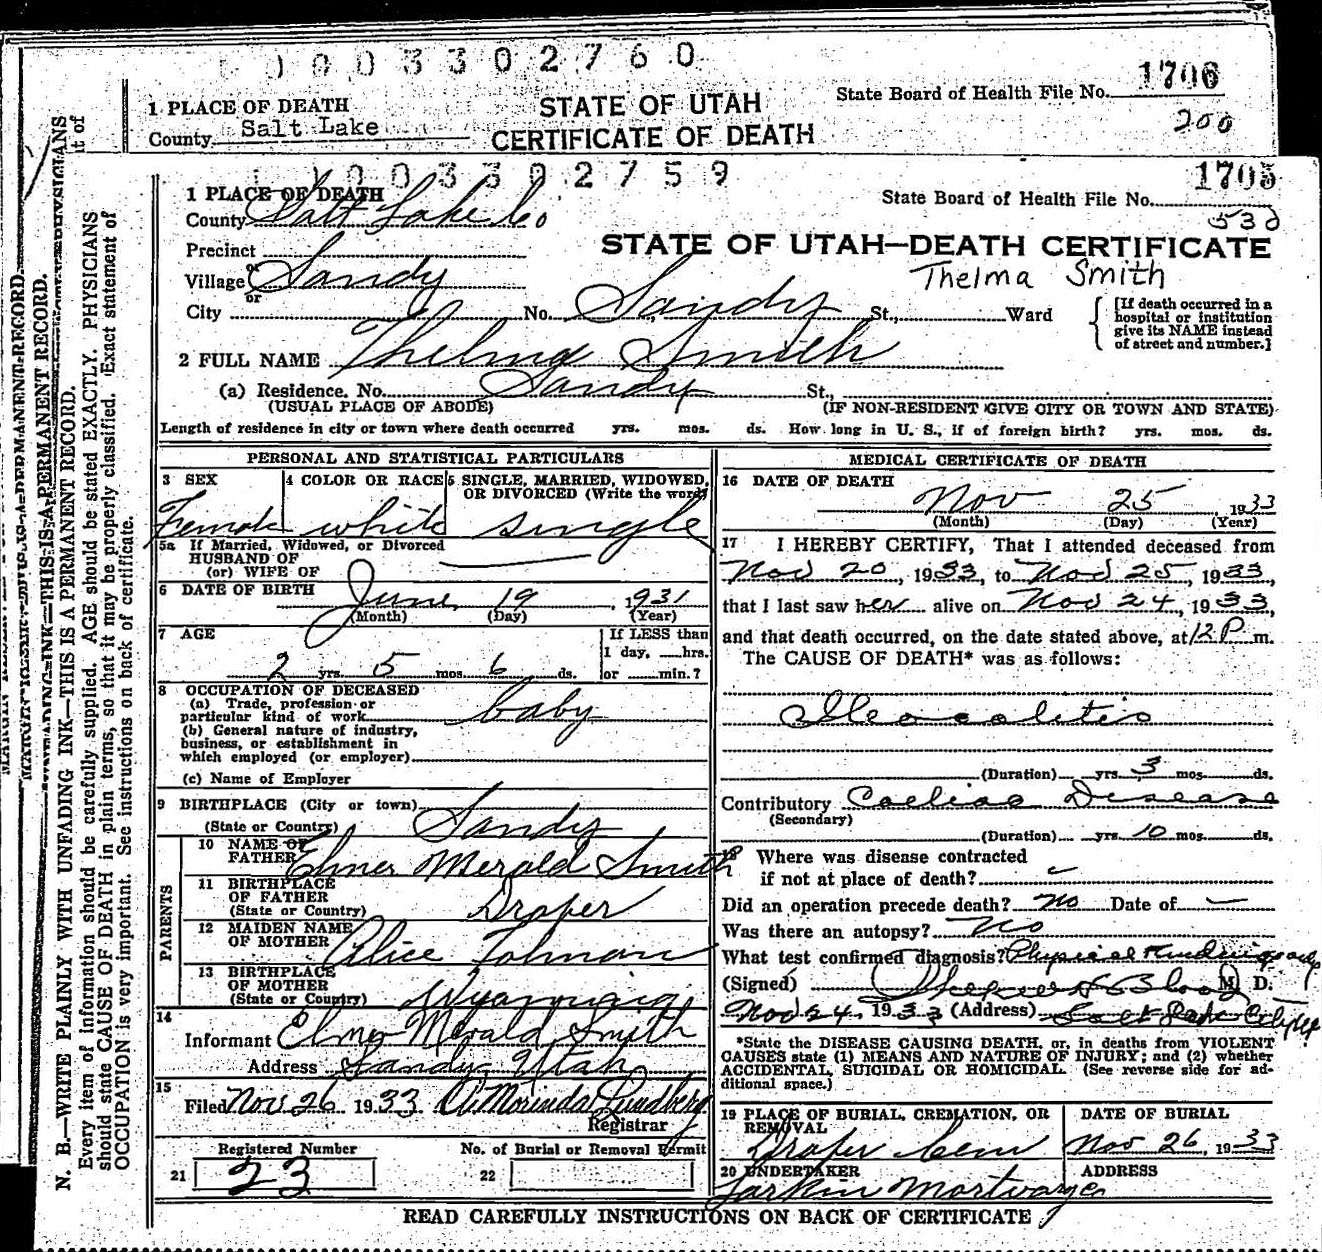 0003302760
1 PLACE OF DEATH
County Salt Lake
STATE OF UTAH
CERTIFICATE OF DEATH
State Board of Health File No. 1706
200
003302759
1 PLACE OF DEATH
County Salt Lake Co
State Board of Health File No. 1705
530
Precinct
STATE OF UTAH—DEATH CERTIFICATE
Village or Sandy
Thelma Smith
City No. Sandy St., Ward
[If death occurred in a hospital or institution give its NAME instead of street and number.]
2 FULL NAME Thelma Smith
(a) Residence. No. Sandy St.,
(USUAL PLACE OF ABODE) (IF NON-RESIDENT GIVE CITY OR TOWN AND STATE)
Length of residence in city or town where death occurred yrs. mos. ds. How long in U. S., if of foreign birth? yrs. mos. ds.
PERSONAL AND STATISTICAL PARTICULARS
3 SEX Female
4 COLOR OR RACE white
5 SINGLE, MARRIED, WIDOWED, OR DIVORCED (Write the word) single
5a If Married, Widowed, or Divorced
HUSBAND OF
(or) WIFE OF
6 DATE OF BIRTH June 19, 1931
(Month) (Day) (Year)
7 AGE
2 yrs. 5 mos 6 ds.
If LESS than
1 day, hrs.
or min.?
8 OCCUPATION OF DECEASED
(a) Trade, profession or
particular kind of work baby
(b) General nature of industry,
business, or establishment in
which employed (or employer)
(c) Name of Employer
9 BIRTHPLACE (City or town) Sandy
(State or Country)
PARENTS
10 NAME OF FATHER Elmer Merald Smith
11 BIRTHPLACE OF FATHER Draper
(State or Country)
12 MAIDEN NAME OF MOTHER Alice
13 BIRTHPLACE OF MOTHER
(State or Country)
14
Informant Elmer Merald Smith
Address Sandy Utah
15
Filed Nov 26 1933
Registrar
Registered Number
21 23
No. of Burial or Removal Permit
22
MEDICAL CERTIFICATE OF DEATH
16 DATE OF DEATH
Nov 25 1933
(Month) (Day) (Year)
17 I HEREBY CERTIFY, That I attended deceased from
Nov 20, 1933, to Nov 25, 1933,
that I last saw her alive on Nov 24, 1933,
and that death occurred, on the date stated above, at 12 P m.
The CAUSE OF DEATH* was as follows:
Ileocolitis
(Duration) yrs. 3 mos. ds.
Contributory Coeliac Disease
(Secondary)
(Duration) yrs. 10 mos. ds.
18 Where was disease contracted
if not at place of death?
Did an operation precede death? no Date of
Was there an autopsy? no
What test confirmed diagnosis? Physical
(Signed) M. D.
Nov 24, 1933 (Address) Salt Lake City
*State the DISEASE CAUSING DEATH, or, in deaths from VIOLENT
CAUSES state (1) MEANS AND NATURE OF INJURY; and (2) whether
ACCIDENTAL, SUICIDAL OR HOMICIDAL. (See reverse side for ad-
ditional space.)
19 PLACE OF BURIAL, CREMATION, OR REMOVAL
Draper Cem
DATE OF BURIAL
Nov 26, 1933
20 UNDERTAKER
Larkin Mortuary
ADDRESS
READ CAREFULLY INSTRUCTIONS ON BACK OF CERTIFICATE
N. B.—WRITE PLAINLY WITH UNFADING INK—THIS IS A PERMANENT RECORD.
Every item of information should be carefully supplied. AGE should be stated EXACTLY. PHYSICIANS
should state CAUSE OF DEATH in plain terms, so that it may be properly classified. Exact statement of
OCCUPATION is very important. See instructions on back of certificate.